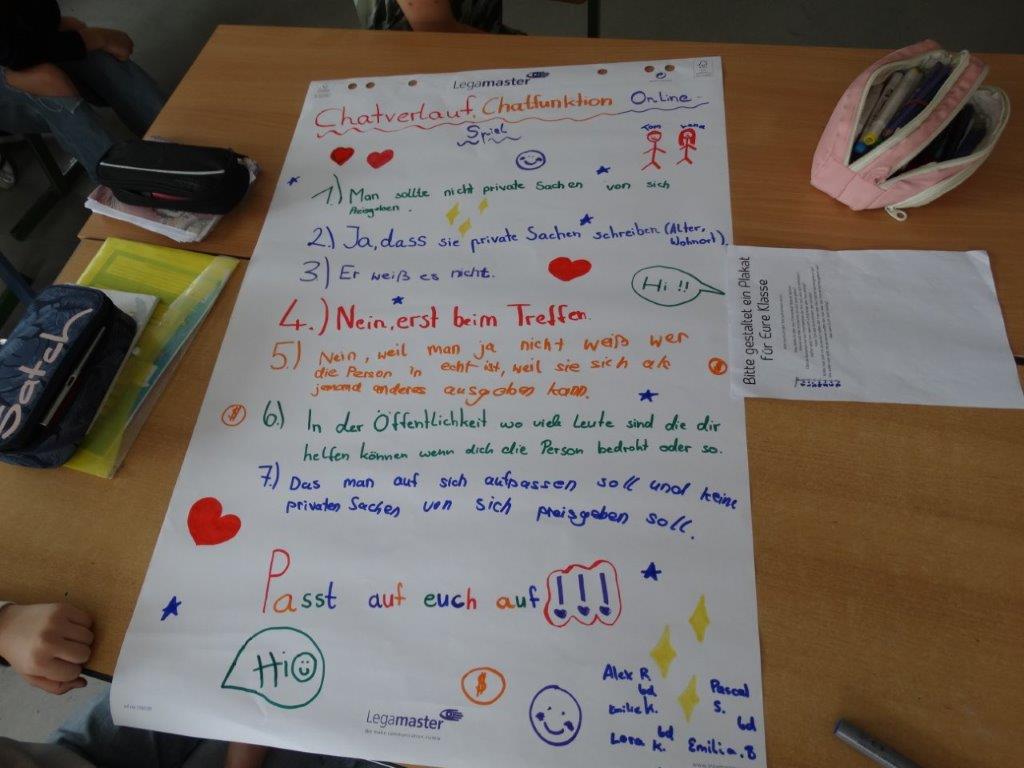 Legamaster
Chatverlauf Chatfunktion Online-
Spiel
Tom Lena
1.) Man sollte nicht private Sachen von sich
Preisgeben.
2.) Ja, dass sie private Sachen schreiben (Alter,
Wohnort).
3.) Er weiß es nicht.
Hi !!
4.) Nein, erst beim Treffen.
5.) Nein, weil man ja nicht weiß wer
die Person in echt ist, weil sie sich als
jemand anderes ausgeben kann.
6.) In der Öffentlichkeit wo viele Leute sind die dir
helfen können wenn dich die Person bedroht oder so.
7.) Das man auf sich aufpassen soll und keine
privaten Sachen von sich preisgeben soll.
Passt auf euch auf !!!
Hi
$
$
$
Alex R
bd
Emilie K.
bd
Lora K.
Pascal
S.
bd
Emilia.B
Legamaster
Bitte gestaltet ein Plakat
für Eure Klasse
Satch